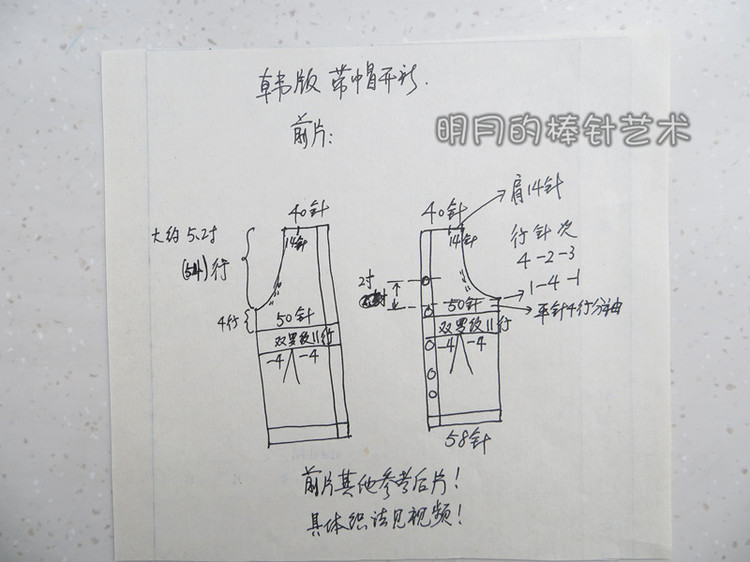 韩版 带帽开衫.
明月的棒针艺术
前片:
肩14针
40针
40针
14针
14针
大约 5.2寸
行
4行
50针
双罗纹11行
-4 -4
行 针 次
4-2-3
1-4-1
平针4行分袖
2寸
50针
双罗纹11行
-4 -4
58针
前片其他参考后片!
具体织法见视频!